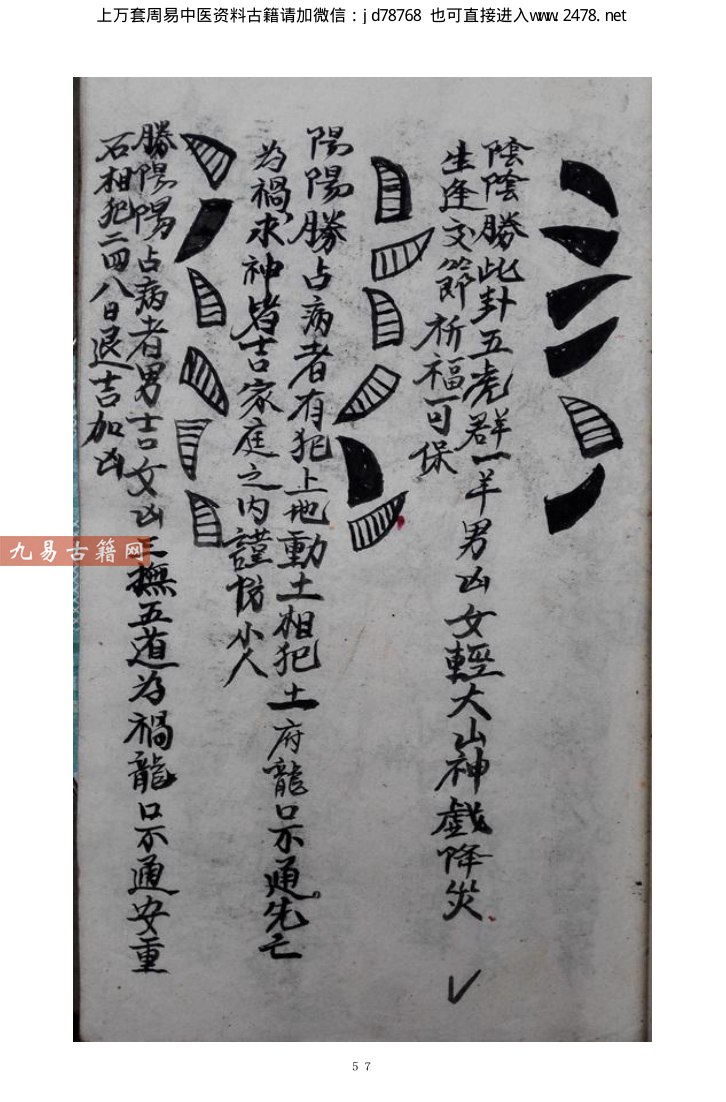 上万套周易中医资料古籍请加微信：jd78768 也可直接进入www.2478.net
陰陰勝此卦五虎群一羊男凶女輕大山神戲降災
生逢交節祈福可保
陽陽勝占病者有犯上地動土相犯土府龍口不通先亡
為禍求神皆吉家庭之內謹防小人
勝陽陽占病者男吉女凶三撫五道為禍龍口不通安重
石相犯二四八日退吉加凶
九易古籍网
57